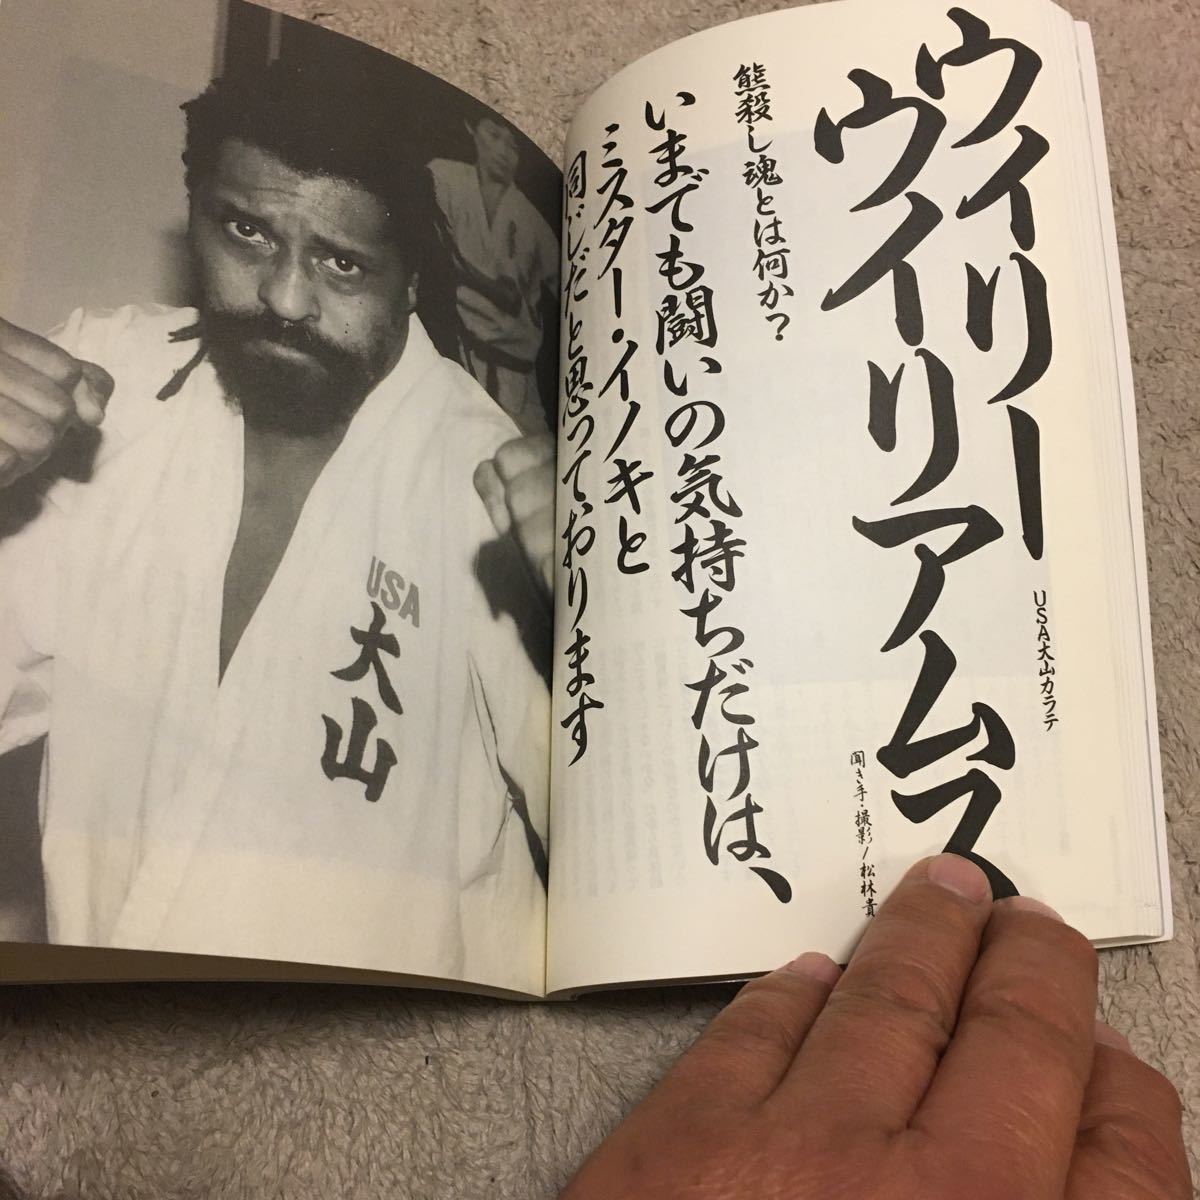 ウィリー
ウイリアムス
USA大山カラテ
聞き手・撮影/松林貴
熊殺し魂とは何か?
いまでも闘いの気持ちだけは、
ミスター・イノキと
同じだと思っております
USA
大山